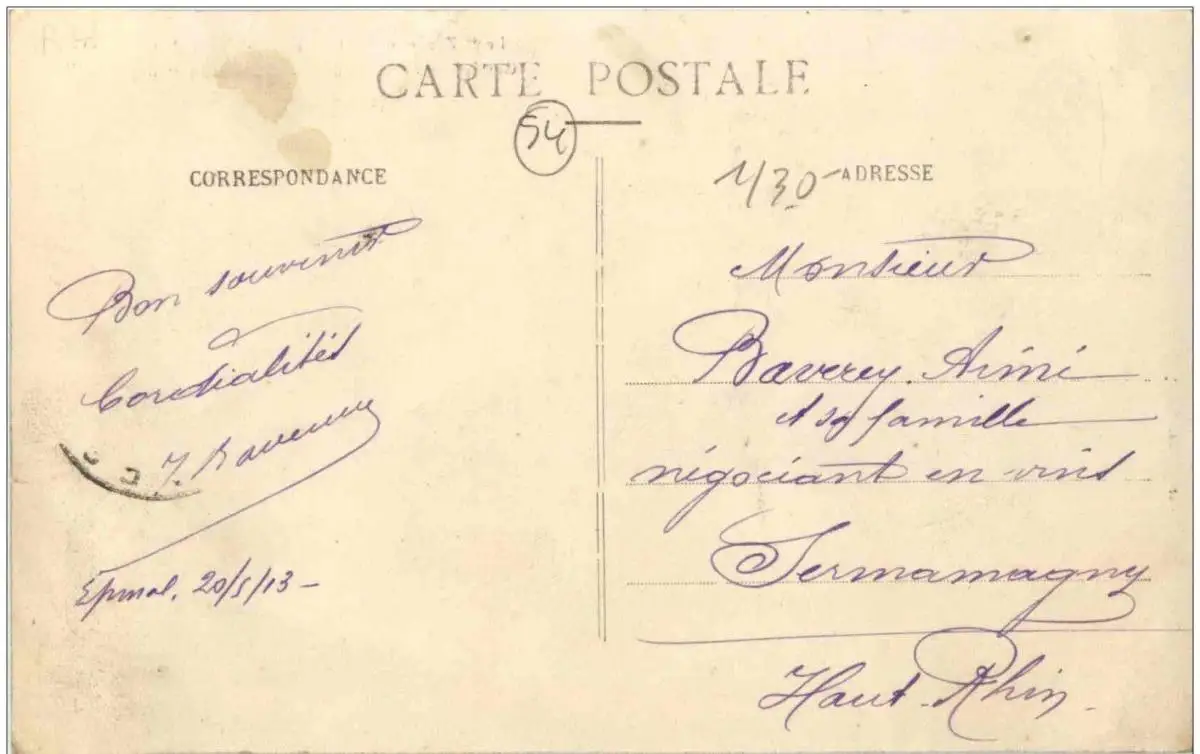 CARTE POSTALE
54
CORRESPONDANCE
Bon souvenir
Cordialités
Epinal, 20/5/13 -
430
ADRESSE
Monsieur
Baverey Aimé
et sa famille
négociant en vins
Sermamagny
Haut-Rhin.